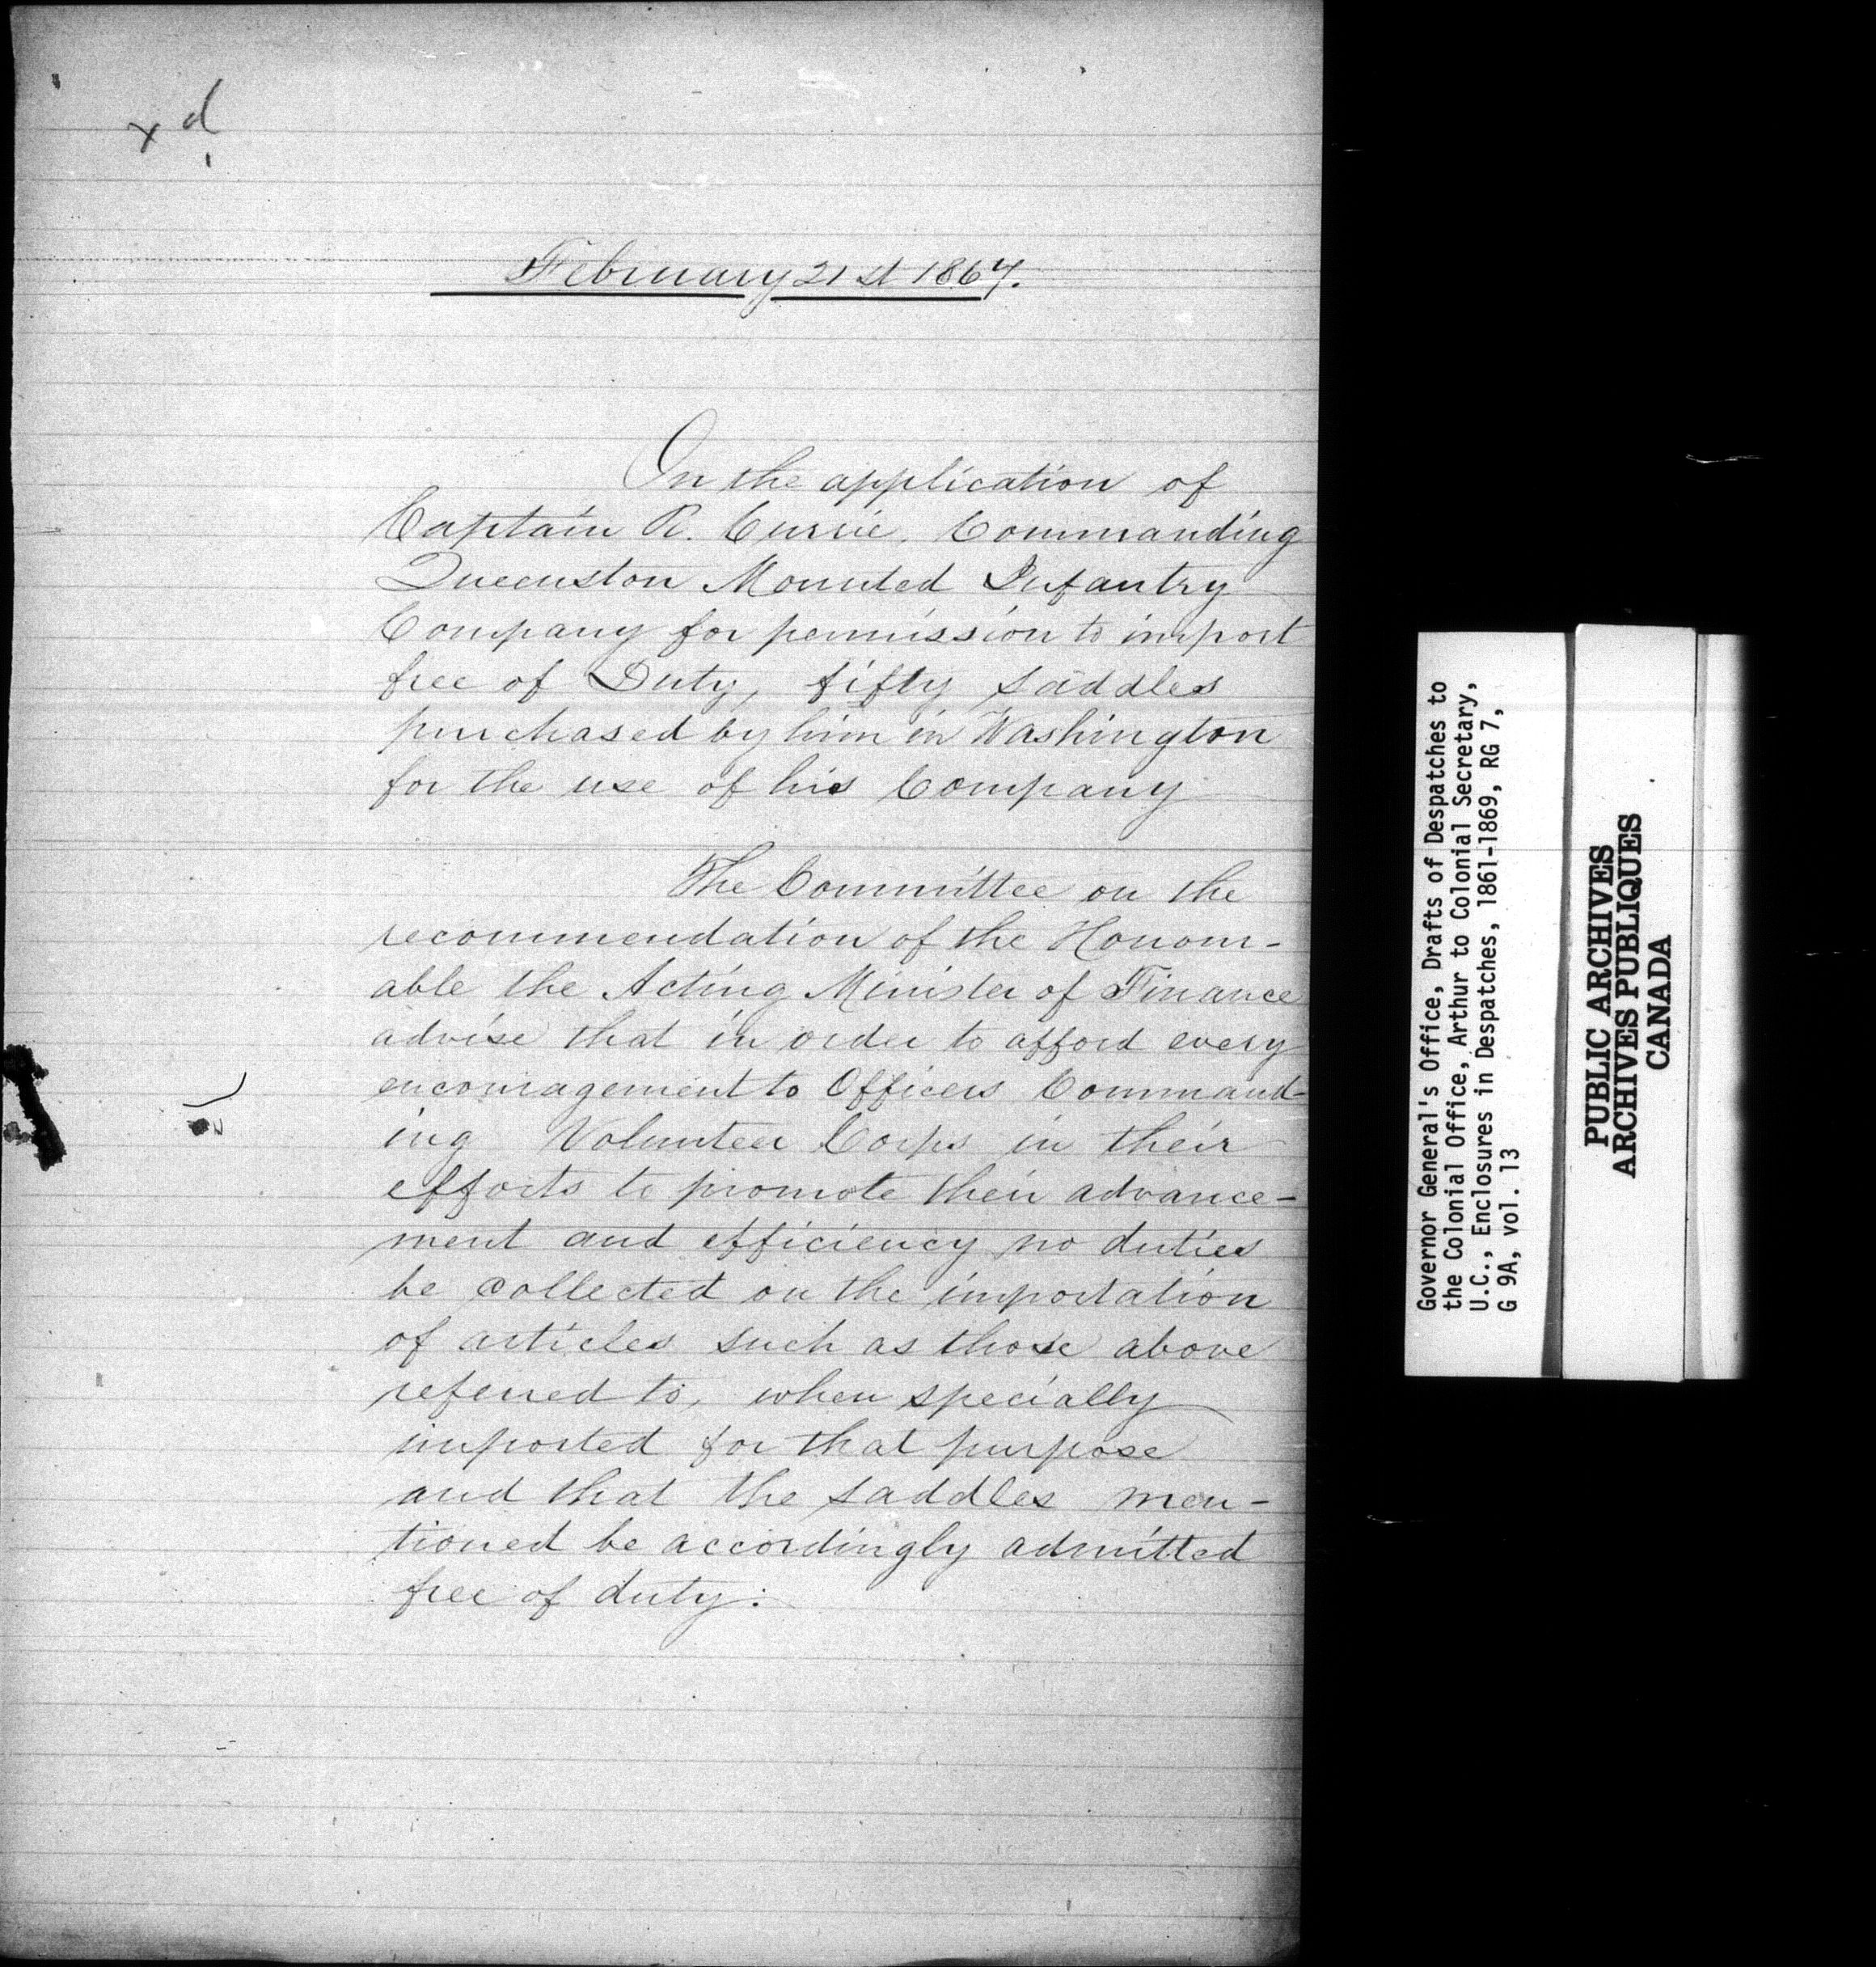 x d
February 21st 1867.
On the application of
Captain R. Currie, Commanding
Queenston Mounted Infantry
Company for permission to import
free of Duty, fifty saddles
purchased by him in Washington
for the use of his Company
The Committee on the
recommendation of the Honour-
able the Acting Minister of Finance
advise that in order to afford every
encouragement to Officers Command-
ing Volunteer Corps in their
efforts to promote their advance-
ment and efficiency no duties
be collected on the importation
of articles such as those above
referred to, when specially
imported for that purpose
and that the saddles men-
tioned be accordingly admitted
free of duty:
Governor General's Office, Drafts of Despatches to
the Colonial Office, Arthur to Colonial Secretary,
U.C., Enclosures in Despatches, 1861-1869, RG 7,
G 9A, vol. 13
PUBLIC ARCHIVES
ARCHIVES PUBLIQUES
CANADA